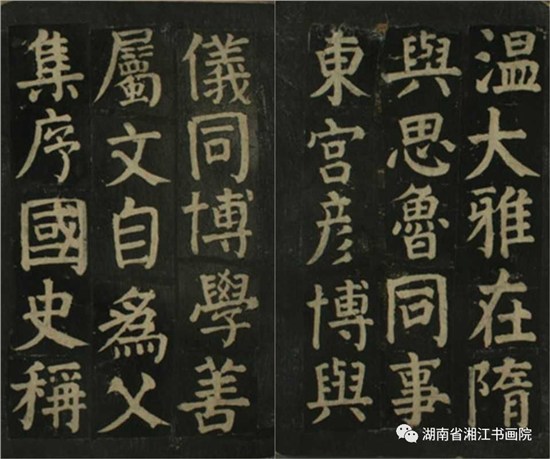 温大雅在隋
與思魯同事
東宮彥博與
儀同博學善
屬文自爲父
集序國史稱
湖南省湘江书画院